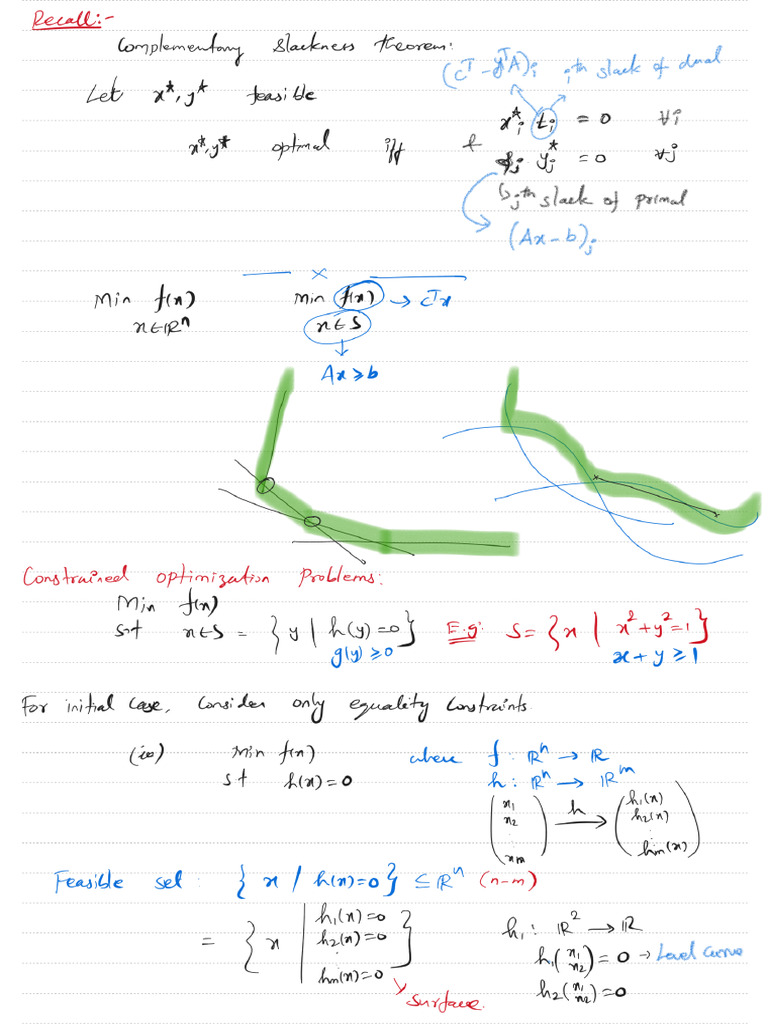 Recall:-
Complementary Slackness theorem:
(cᵀ - yᵀA)ᵢ iᵗʰ slack of dual
Let x*, y* feasible
x*ᵢ tᵢ = 0 ∀i
x*, y* optimal iff &
sⱼ yⱼ* = 0 ∀j
↳ jᵗʰ slack of primal
(Ax - b)ⱼ
—— x ——
Min f(x) Min f(x) → cᵀx
x∈ℝⁿ x∈S
↓
Ax ≥ b
Constrained optimization Problems:
Min f(x)
s.t x∈S = { y | h(y) = 0 } E.g: S = { x | x² + y² = 1 }
g(y) ≥ 0 x + y ≥ 1
For initial case, Consider only equality Constraints.
(ie) Min f(x) where f : ℝⁿ → ℝ
st h(x) = 0 h : ℝⁿ → ℝᵐ
(x₁ x₂ : xₘ) —h→ (h₁(x) h₂(x) : hₘ(x))
Feasible set : { x / h(x) = 0 } ⊆ ℝⁿ (n-m)
= { x | h₁(x) = 0 h₂(x) = 0 : hₘ(x) = 0 }
↘ Surface.
h₁ : ℝ² → ℝ
h₁(x₁ x₂) = 0 → Level curve
h₂(x₁ x₂) = 0